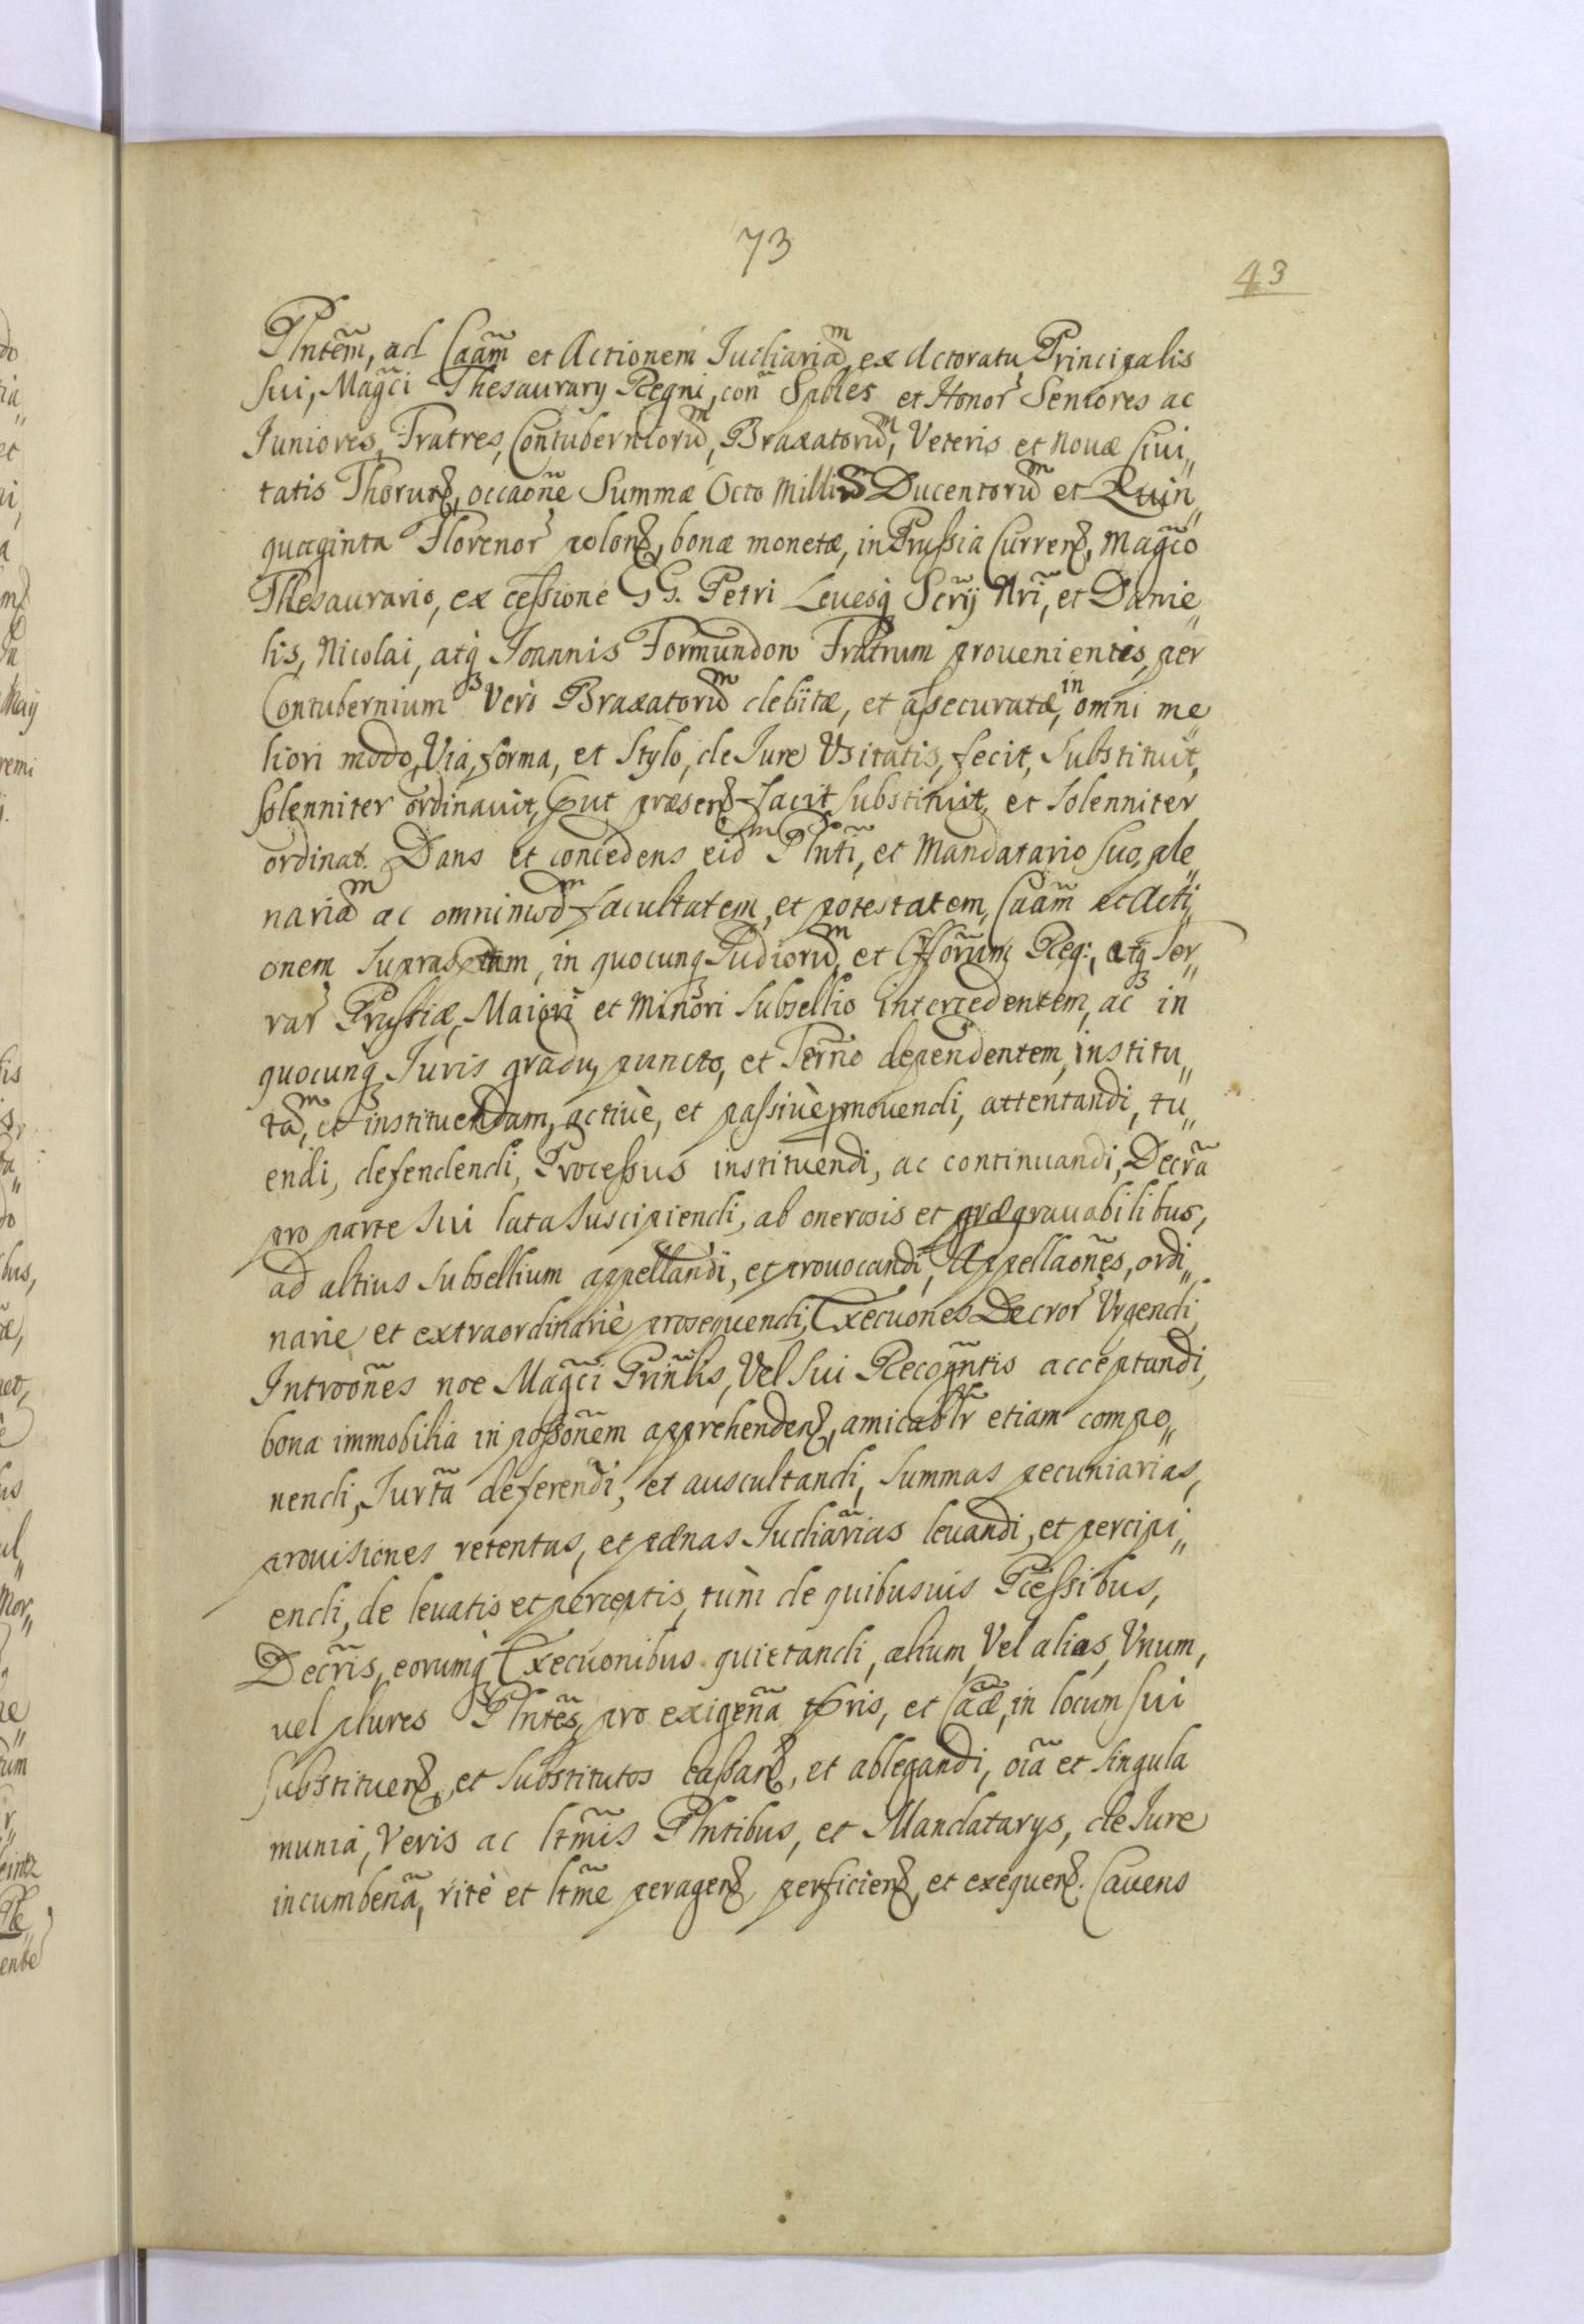 73
43
Plntẽm, ad Caãm et Actionem Iudiariam, ex Actoratu Principalis
sui, Magc̃i Thesaurarij Regni, coñ Spbles et Honor Seniores ac
Iuniores, Fratres, Contuberniorum, Braxatorum, Veteris et Nouæ Ciui„
tatis Thorun̄, occaoñe Summæ Octo Millium Ducentorum et Quin„
quaginta Florenor polon̄, bonæ monetæ, in Prussia Curren̄, Magc̃o
Thesaurario, ex cessione GG. Petri Leuesq̨ Scr̃ij Nr̃i, et Danie„
lis, Nicolai, atq̨ Ioannis Formundow Fratrum prouenientis, per
Contubernium Verò Braxatorum debitæ, et assecuratæ, in omni me„
liori modo, Via, forma, et Stylo, de Iure Vsitatis, fecit, Substituit,
solenniter ordinauit, Put præsen̄ facit substituit, et solenniter
ordinat. Dans et concedens eidm Plnt̃i, et Mandatario suo, ple„
nariam ac omnimodm facultatem, et potestatem, Caãm et Acti„
onem suprasptam, in quocunq̨ Iudiorum, et Offõrum Reg:, atq̨ Ter„
rar Prussiæ, Maiori et Minori subsellio intercedentem, ac in
quocunq̨ Iuris gradu, puncto, et Term̃o dependentem, institu„
tam, et instituendam, actiuè, et passiuè pmouendi, attentandi, tu„
endi, defendendi, Processus instituendi, ac continuandi, Decr̃a
pro parte sui lata suscipiendi, ab onerosis et prægrauabilibus,
ad altius subsellium appellandi, et prouocandi, Appellaoñes, ordi„
nariè et extraordinariè prosequendi, Execuones Decror Vrgendi,
Introoñes noe Magc̃i Prinl̃is, Vel sui Recogñtis acceptandi,
bona immobilia in possoñem apprehenden̄, amicablr̃ etiam compo„
nendi, Iurt̃a deferendi, et auscultandi, summas pecuniarias,
prouisiones retentas, et pœnas Iudiãrias leuandi, et percipi„
endi, de leuatis et perceptis, tùm de quibusuis Pcessibus,
Decr̃is, eorumq̨ Execuonibus quietandi, alium, Vel alios, Vnum,
uel plures Plnt̃es, pro exigeñã tpris, et Caãe, in locum sui
substituen̄, et substitutos cassan̄, et ablegandi, oĩa et singula
munia, Veris ac ltm̃is Plntibus, et Mandatarys, de Iure
incumbeñã, ritè et ltm̃e peragen̄, perficien̄, et exequen̄. Cauens